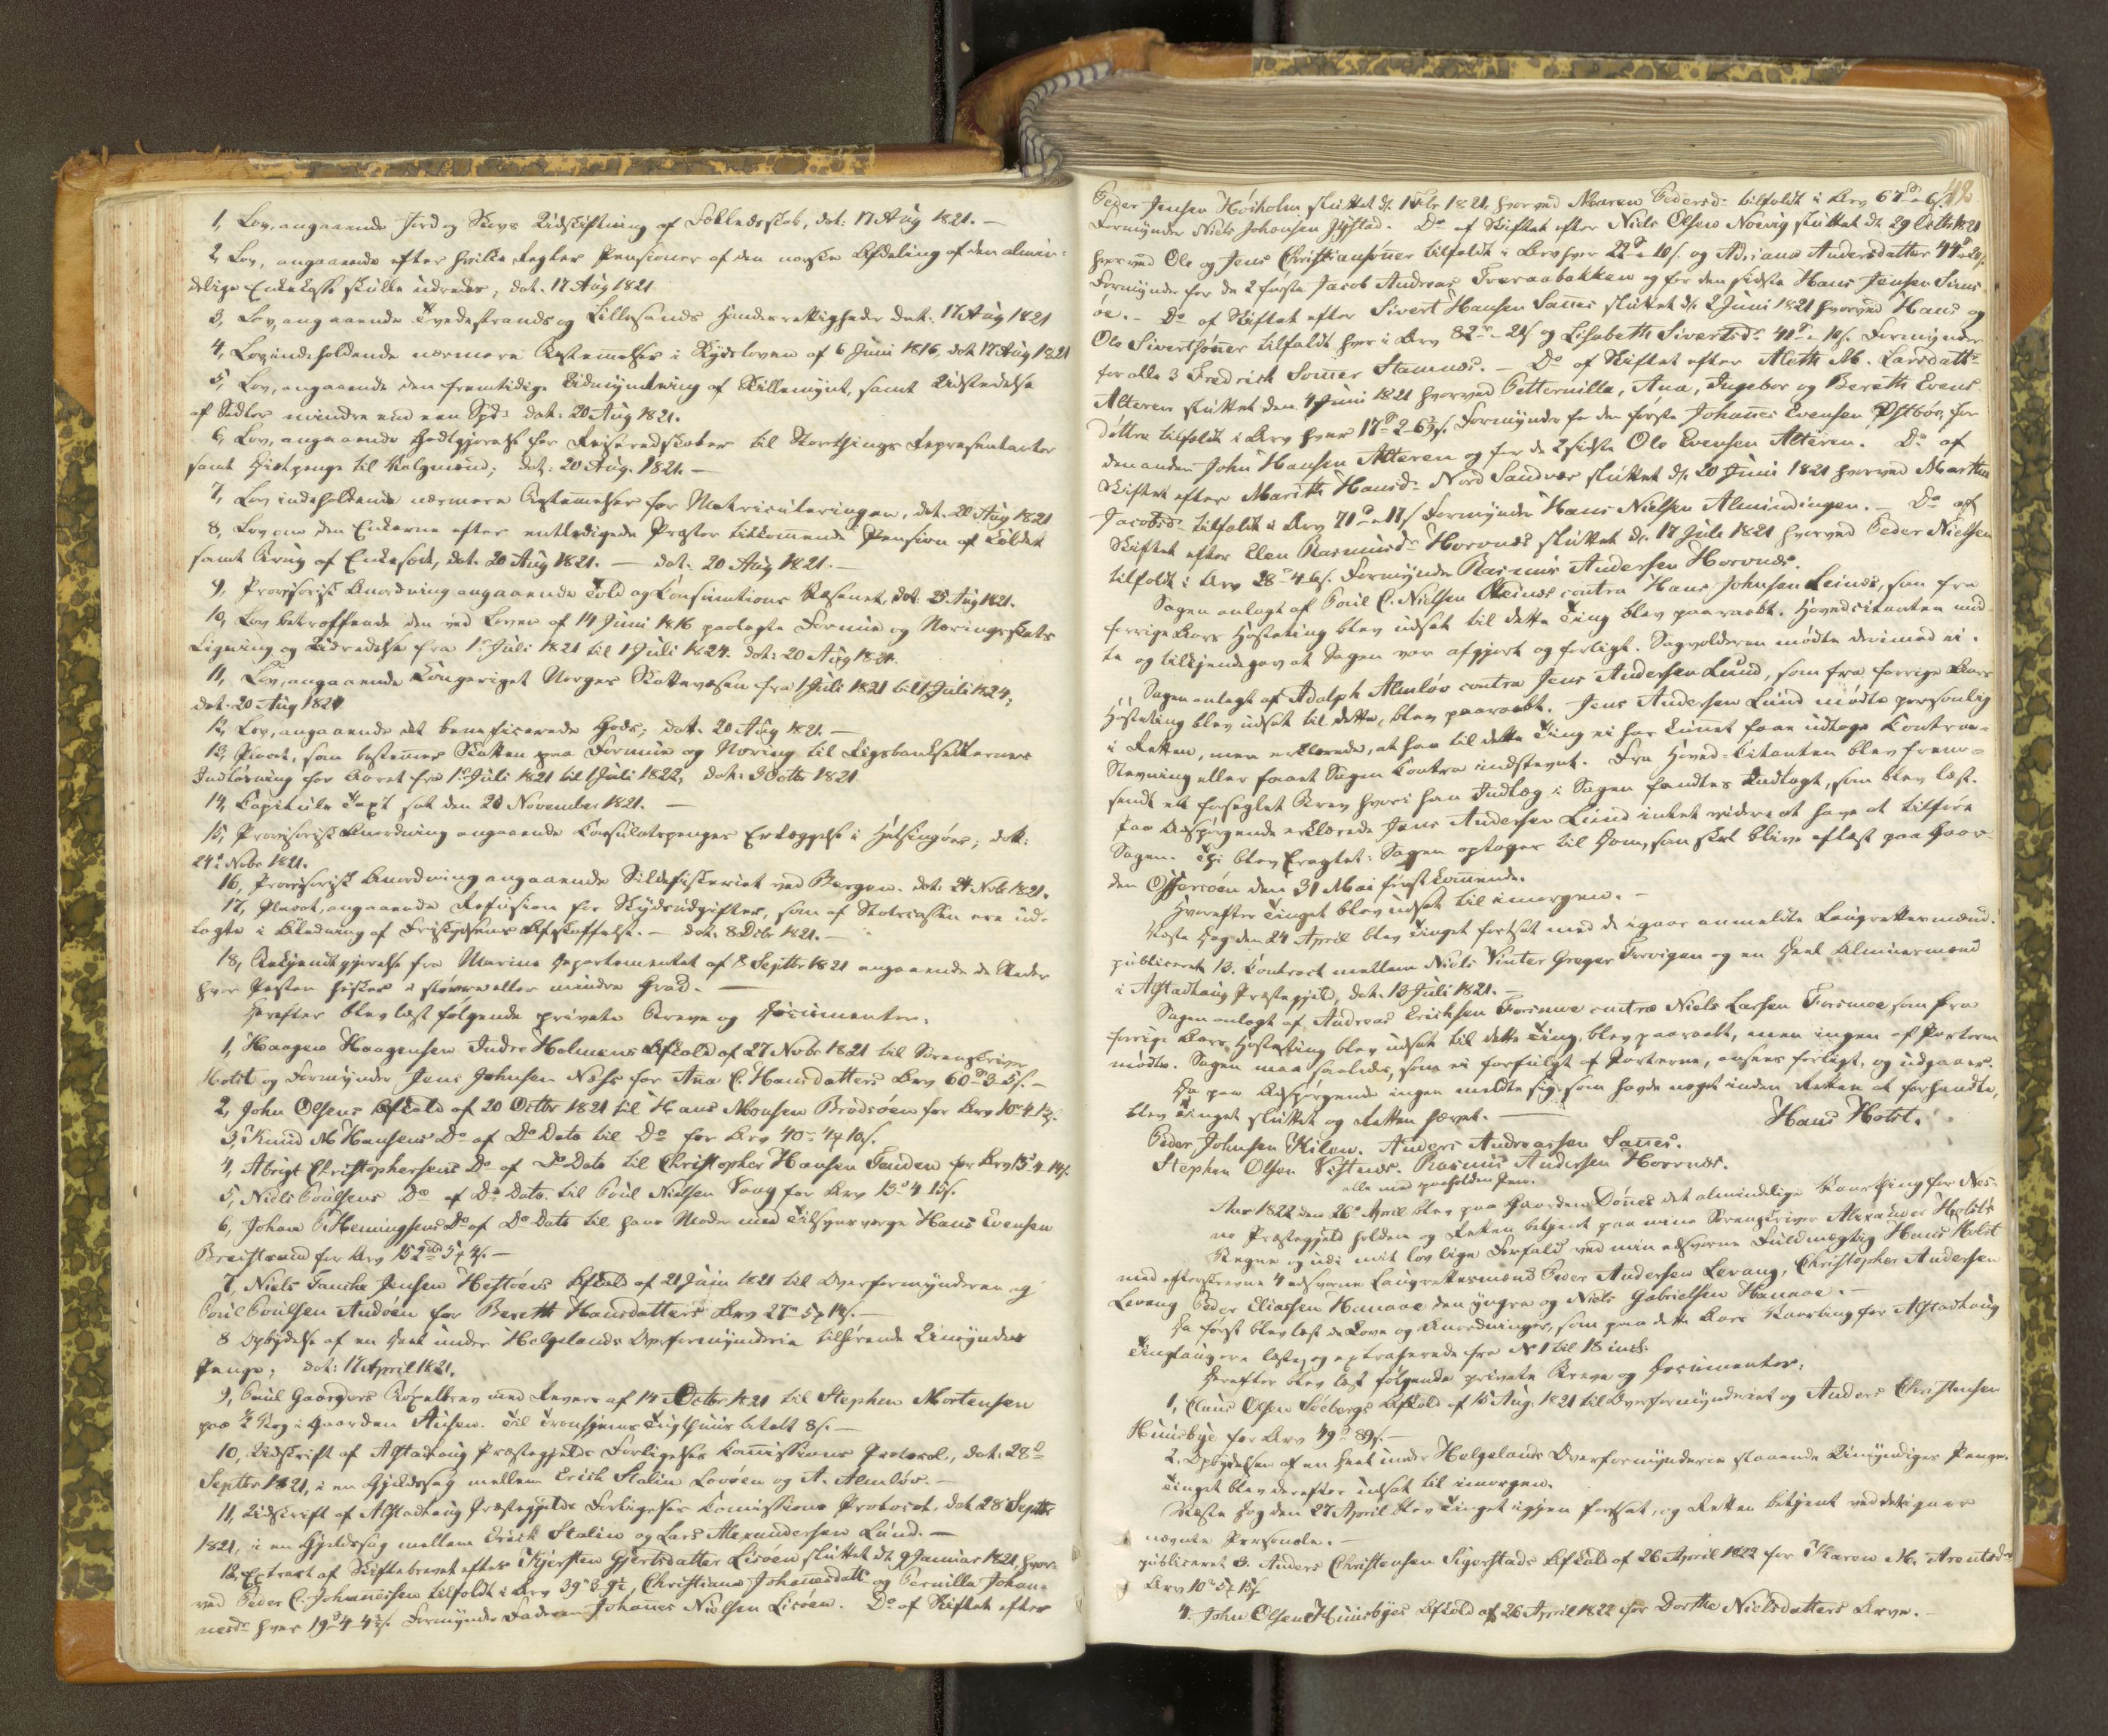 1, Lov, angaaende Jord og Skovs Udskiftning af Fælledsskab, dat: 17 Aug 1821. —
2, Lov, angaaende efter hvilke Regler Pensioner af den norske Afdeling af den almin-
delige Enkekasse skulle udredes, dat. 17 Aug 1821.
3, Lov, angaaende Tvedestrands og Lillesands Handelsrettigheder dat: 17 Aug 1821
4, Lov indeholdende nærmere Bestemmelser i Skydsloven af 6 Juni 1816, dat 17 Aug 1821
5, Lov, angaaende den fremtidige Udmyntning af Skillemynt, samt Udstedelse
af Sedler mindre end een Spd: dat: 20 Aug 1821.
6, Lov, angaaende Godtgjørelse for Reiseredskaber til Storthings Repræsentanter
samt Diætpenge til Valgmænd; dat: 20 Aug. 1821. —
7, Lov indeholdende nærmere Bestemmelser for Matriculeringen, dat. 20 Aug 1821
8, Lov om den Enkerne efter entledigede Præster tilkommende Pension af Kaldet
samt Brug af Enkesæde, dat. 20 Aug 1821. — dat. 20 Aug 1821. —
9, Provisorisk Anordning angaaende Told og Consumtions Væsenet, dat. 25 Aug 1821.
10, Lov betræffende den ved Loven af 14 Juni 1816 paalagte Formue og Næringsskats
Ligning og Udredelse fra 1 Juli 1821 til 1 Juli 1824. dat: 20 Aug 1821.
11, Lov, angaaende Kongeriget Norges Skattevæsen fra 1 Juli 1821 til 1 Juli 1824,
dat. 20 Aug 1821
12, Lov, angaaende det beneficerede Gods; dat. 20 Aug 1821. —
13, Placat, som bestemmer Skatten paa Formue og Næring til Rigsbanksedlernes
Indløsning for Aaret fra 1 Juli 1821 til 1 Juli 1822, dat: 3 Octbr 1821
14, Capituls Taxt sat den 20 November 1821. —
15, Provisorisk Anordning angaaende Consulatspenges Erlæggelse i Helsingøer; dat:
24 Novbr 1821.
16, Provisorisk Anordning angaaende Sildefiskeriet ved Bergen. dat: 24 Novbr 1821.
17, Placat, angaaende Refusion for Skydsudgifter, som af Statscassen ere ud-
lagte i Anledning af Friskydsens Afskaffelse. — dat: 8 Decbr 1821. —
18, Bekjendtgjørelse fra Marine Departementet af 8 Septbr 1821 angaaende de Steder
hvor Pesten hersker i større eller mindre Grad. —
Herefter blev læst følgende private Breve og Documenter:
1, Haagen Haagensen Indre Holmens Afkald af 27 Novbr 1821 til Sorenskriver
Holst og Formynder Jens Johnsen Næss for Ana C. Hansdatters Arv 60 3 5 s. —
2, John Olsens Afkald af 20 Octbr 1821 til Hans Monsen Brodsøen for Arv 10 4 13 s.
3, Knud M Hansens Do af Do Dato til Do for Arv 40 4 10 s.
4, Abrigt Christophersens Do af Do Dato til Christopher Hansen Tenden for Arv 13 4 14 s.
5, Niels Poulsens Do af Do Dato til Poul Nielsen Vaag for Arv 13 4 15 s.
6, Johan P Hemingsens Do af Do Dato til hans Moder med Tilsynsværge Hans Evensen
Breistrand for Arv 152 5 4 s. —
7, Niels Fanche Jensen Hestøens Afkald af 21 Juin 1821 til Overformynderen og
Poul Poulsen Andøen for Bereth Hansdatters Arv 27 5 14 s. —
8 Opbydelse af en Deel under Helgelands Overformynderie tilhørende Umyndes
Penge; dat: 17 April 1821.
9, Poul Gaarders Bøxelbrev med Revers af 14 Octbr 1821 til Stephen Mortensen
paa ½ Vog i Gaarden Ausen. Til Tronhjems Tugthuus betalt 8 s. —
10, Udskrift af Alstadhaug Præstegjelds Forligelses Commissions Protocol, dat: 28
Septbr 1821, i en Gjeldssag mellem Erich Stalin Lovøen og A. Almlöv. —
11, Udskrift af Alstadhaug Præstegjelds Forligelses Commissions Protocol, dat 28 Septbr
1821, i en Gjeldssag mellem Erich Stalin og Lars Alexandersen Lund. —
12, Extract af Skiftebrevet efter Kjersten Gjertsdatter Lisøen sluttet d. 9 Januar 1821, hvor-
ved Peder C. Johannesen tilfaldt i Arv 39 3 9, Christiana Johannesdatt og Pernilla Johan-
nesdr hver 19 4 4 s. Formynder Faderen Johannes Nielsen Lisøen. Do af Skiftet efter
42
Peder Jensen Høiholm sluttet d. 1 Febr 1821, hvorved Maren Pedersd: tilfaldt i Arv 67 6 s.
Formynder Niels Johansen Jistad. Do af Skiftet efter Niels Olsen Norvig sluttet d. 29 Octbr 1821
hvorved Ole og Jens Christiansønner tilfaldt i Arv hver 22 10 s. og Adriane Andersdatter 44 20 s.
Formynder for de 2 første Jacob Andreas Tveraabakken og for den sidste Hans Jensen Sims-
øe. — Do af Skiftet efter Sivert Hansen Sannes sluttet d. 2 Juni 1821 hvorved Hans og
Ole Sivertsønner tilfaldt hver i Arv 82 21 s og Lisabeth Sivertsdr 41 10 s. Formynder
for alle 3 Fredrich Sommer Stamnes. — Do af Skiftet efter Aleth M. Larsdattr
Alteren sluttet den 4 Juni 1821 hvorved Petternilla, Ana, Ingebor og Bereth Evens
døttre tilfaldt i Arv hver 17 2 6 s. Formynder for den første Johannes Evensen Ystbøe, for
den anden John Hansen Alteren og for de 2 sidste Ole Evensen Alteren. Do af
Skiftet efter Marith Hansdr Nord Sandvær sluttet d. 20 Juni 1821 hvorved Martha
Jacobsdr tilfaldt i Arv 71 17 s Formynder Hans Nielsen Almindingen. — Do af
Skiftet efter Elen Rasmusdr Horvnes sluttet d. 17 Juli 1821 hvorved Peder Nielsen
tilfaldt i Arv 28 4 6 s. Formynder Rasmus Andersen Horvnes.
Sagen anlagt af Poul C. Nielsen Leines contra Hans Johnsen Leines, som fra
forrige Aars Høsteting blev udsat til dette Ting blev paaraabt. Hovedcitanten mød-
te og tilkjendegav at Sagen var afgjort og forligt. Sagvolderen mødte derimod ei.
Sagen anlagt af Adolph Almlöv contra Jens Andersen Lund, som fra forrige Aars
Høsteting blev udsat til dette, blev paaraabt. Jens Andersen Lund mødte personlig
i Retten, men erklærede, at han til dette Ting ei har kunnet faae udtage Contra-
Stevning eller faaet Sagen Contra indstevnt. Fra Hoved-Citanten blev frem-
sendt et forseglet Brev hvori hans Indlæg i Sagen fandtes Indlagt, som blev læst.
Paa Adspørgende erklærede Jens Andersen Lund intet videre at have at tilføie
Sagen. Thi blev Eragtet: Sagen optages til Dom, som skal blive aflæst paa Gaar-
den Offersøen den 31 Mai førstkommende.
Hvorefter Tinget blev udsat til imorgen. —
Næste Dag den 24 April blev Tinget fortsat med de igaar anmeldte Laugrettesmænd.
publiceret 13. Contract mellem Niels Vinter Greger Forvigen og en Deel Almuesmænd
i Alstadhaug Præstegjeld, dat. 13 Juli 1821. —
Sagen anlagt af Andreas Erichsen Forsmoe contra Niels Larsen Forsmoe som fra
forrige Aars Høsteting blev udsat til dette Ting, blev paaraabt, men ingen af Parterne
mødte. Sagen maa saaledes, som ei forfulgt af Parterne, ansees forligt, og udgaaer.
Da paa Adspørgende ingen meldte sig som havde noget inden Retten at forhandle,
blev Tinget sluttet og Retten hævet. —
Hans Holst.
Peder Johnsen Kilen. Anders Andreassen Sannes.
Stephen Olsen Vistnes. Rasmus Andersen Horvnes.
alle med paaholden Pen.
Aar 1822 den 26 April blev paa Gaarden Dønnes det almindelige Vaarthing for Nes-
ne Præstegjeld holden og Retten betjent paa mine Sorenskriver Alexander Holsts
Vegne og udi mit lovlige Forfald ved min edsvorne Fuldmægtig Hans Holst
med efterskrevne 4 edsvorne Laugrettesmænd Peder Andersen Levang, Christopher Andersen
Levang Peder Eliassen Hamaae den yngre og Niels Gabrielsen Hamaae. —
Da først blev læst de Love og Anordninger, som paa dette Aars Vaarting for Alstadhaug
Tinglaug ere læste, og extraherede fra N 1 til 18 incl.
Herefter blev læst følgende private Breve og Documenter:
1, Claus Olsen Söebergs Afkald af 15 Aug: 1821 til Overformynderiet og Anders Christensen
Huusbye for Arv 49 89 s. —
2. Opbydelsen af en Deel under Helgelands Overformynderie staaende Umyndiges Penge.
Tinget blev derefter udsat til imorgen.
Næste Dag den 27 April blev Tinget igjen fortsat, og Retten betjent ved det igaar
nævnte Personale. —
publiceret 3. Anders Christensen Sigerstads Afkald af 26 April 1822 for Karen M. Arentsdrs
Arv 10 5 15 s.
4. John Olsen Huusbyes Afkald af 26 April 1822 for Dorthe Nielsdatters Arv. —